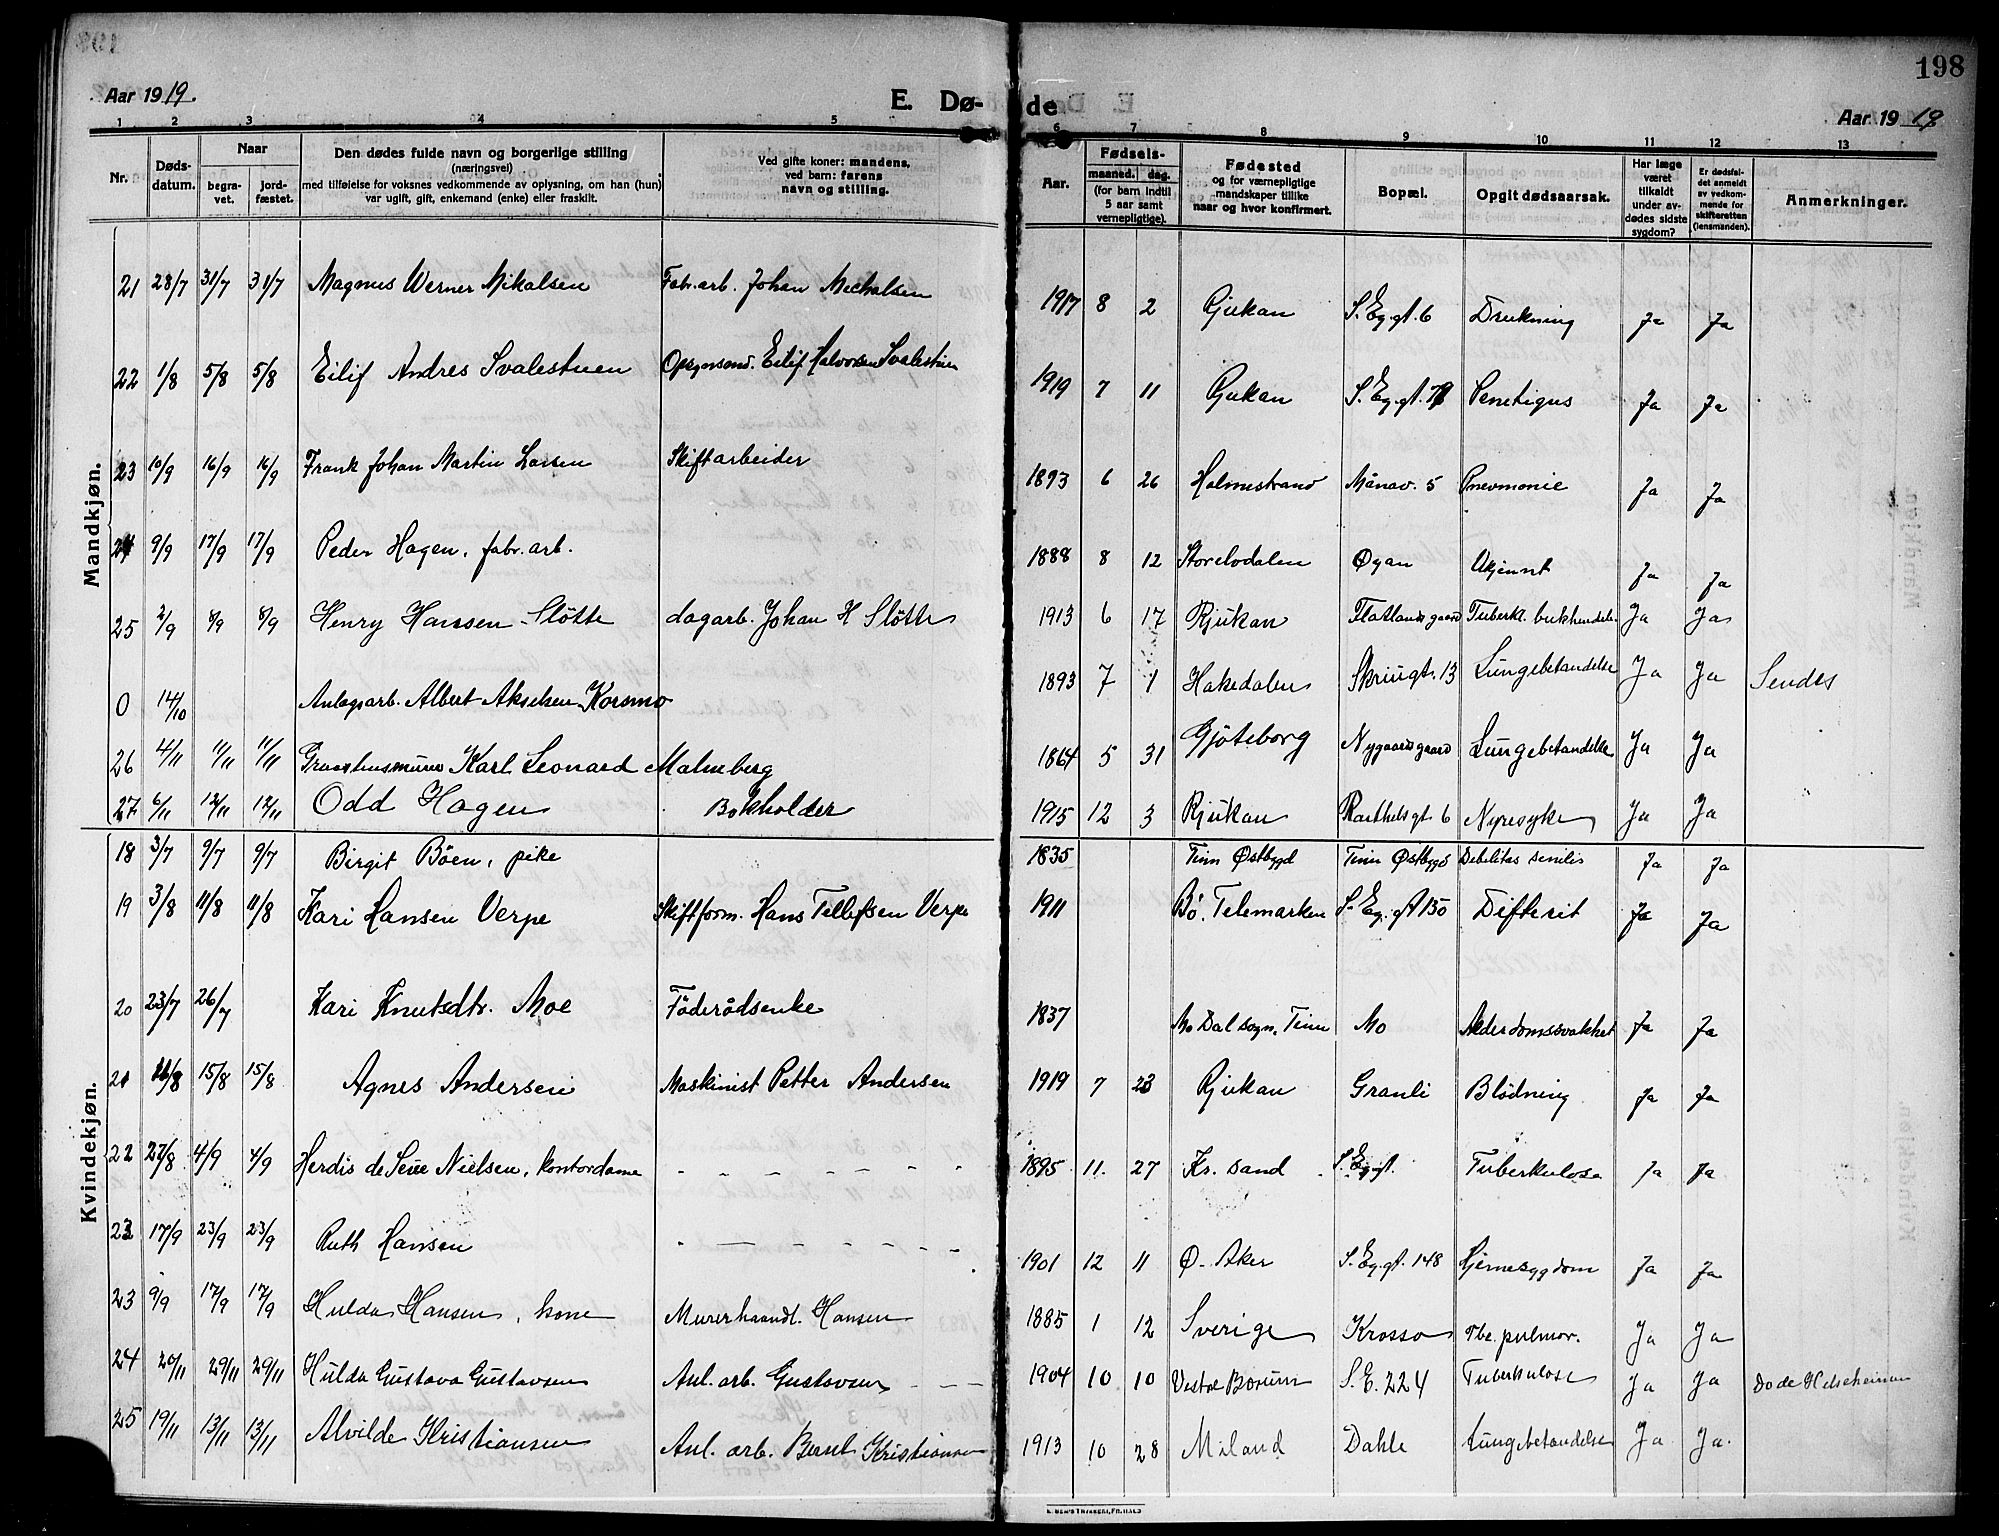 198
Aar 1919.
E. Dø- de
Aar 1919
1 2 3 4 5 6 7 8 9 10 11 12 13
Nr. Døds-datum. Naar begra-vet. jord-fæstet. Den dødes fulde navn og borgerlige stilling (næringsvei) med tilføielse for voksnes vedkommende av oplysning, om han (hun) var ugift, gift, enkemand (enke) eller fraskilt. Ved gifte koner: mandens, ved barn: farens navn og stilling. Aar. Fødsels- maaned. dag. (for barn indtil 5 aar samt vernepligtige). Fødested og for værnepligtige mandskaper tillike naar og hvor konfirmert. Bopæl. Opgit dødsaarsak. Har læge været tilkaldt under av-dødes sidste sygdom? Er dødsfal-det anmeldt av vedkom-mende for skifteretten (lensmanden). Anmerkninger.
Mandkjøn.
21 28/7 31/7 31/7 Magnus Werner Mikalsen Fabr.arb. Johan Michalsen 1917 8 2 Rjukan S. Eg.gt. 6 Drukning Ja Ja
22 1/8 5/8 5/8 Eilif Andres Svalestuen Opsynsmd. Eilif Halvorsen Svalestuen 1919 7 11 Rjukan S. Eg.gt. Ja Ja
23 10/9 16/9 16/9 Frank Johan Martin Larsen Skiftarbeider 1893 6 26 Holmestrand Månav. 5 Pnevmonie Ja Ja
24 9/9 17/9 17/9 Peder Hagen, fabr. arb. 1888 8 12 Storelvdalen Øyan Ukjennt Ja Ja
25 2/9 8/9 8/9 Henry Hanssen Sløtte dagarb. Johan H Sløtte 1913 6 17 Rjukan Flatlandsgaard Tuberkl. bukhindebe. Ja Ja
0 14/10 Anlegsarb. Albert Akselsen Korsmo 1893 7 1 Hakedalen Skriugt. 13 Lungebetændelse Ja Ja Sendes
26 4/11 11/11 11/11 Karl Leonard Malmberg 1864 5 31 Gjøteborg Nygaardsgaard Lungebetændelse Ja Ja
27 6/11 12/11 12/11 Odd Hagen Bokholder 1915 12 3 Rjukan gt 6 Nyresyke Ja Ja
Kvindekjøn.
18 3/7 9/7 9/7 Birgit Böen, pike 1835 Tinn Østbygd Tinn Østbygd Debelitas senilis Ja Ja
19 3/8 11/8 11/8 Kari Hansen Verpe Skiftform. Hans Tellefsen Verpe 1911 Bö. Telemarken S. Eg. gt 150 Difterit Ja Ja
20 23/7 26/7 Kari Knutsdtr. Moe Föderådsenke 1837 Mo Dal sogn, Tinn Mo Alderdomssvakhet Ja Ja
21 15/8 15/8 Agnes Andersen Maskinist Petter Andersen 1919 7 23 Rjukan Granli Blödning Ja Ja
22 27/8 4/9 4/9 Herdis de Seue Nielsen, kontordame - - - - - - 1895 11 27 Kr. sand S. Eg.gt. Tuberkulose Ja Ja
23 17/9 23/9 23/9 Ruth Hansen - - - - - - 1901 12 11 Ø. Aker S. Eg.gt. 148 Hjernesygdom Ja Ja
23 9/9 17/9 17/9 Hulda Hansen, kone Murerhaandl. Hansen 1885 1 12 Sverige Krosso Tbc. pulmor. Ja Ja
24 20/11 29/11 29/11 Hulda Gustava Gustavsen Anl. arb. Gustavsen - - - 1904 10 10 Vestre Bærum S. E. 224 Tuberkulose Ja Ja
25 19/11 13/11 13/11 Alvilde Kristiansen Anl. arb. Bernt Kristiansen 1913 10 28 Miland Dahle Lungebetændelse Ja Ja.